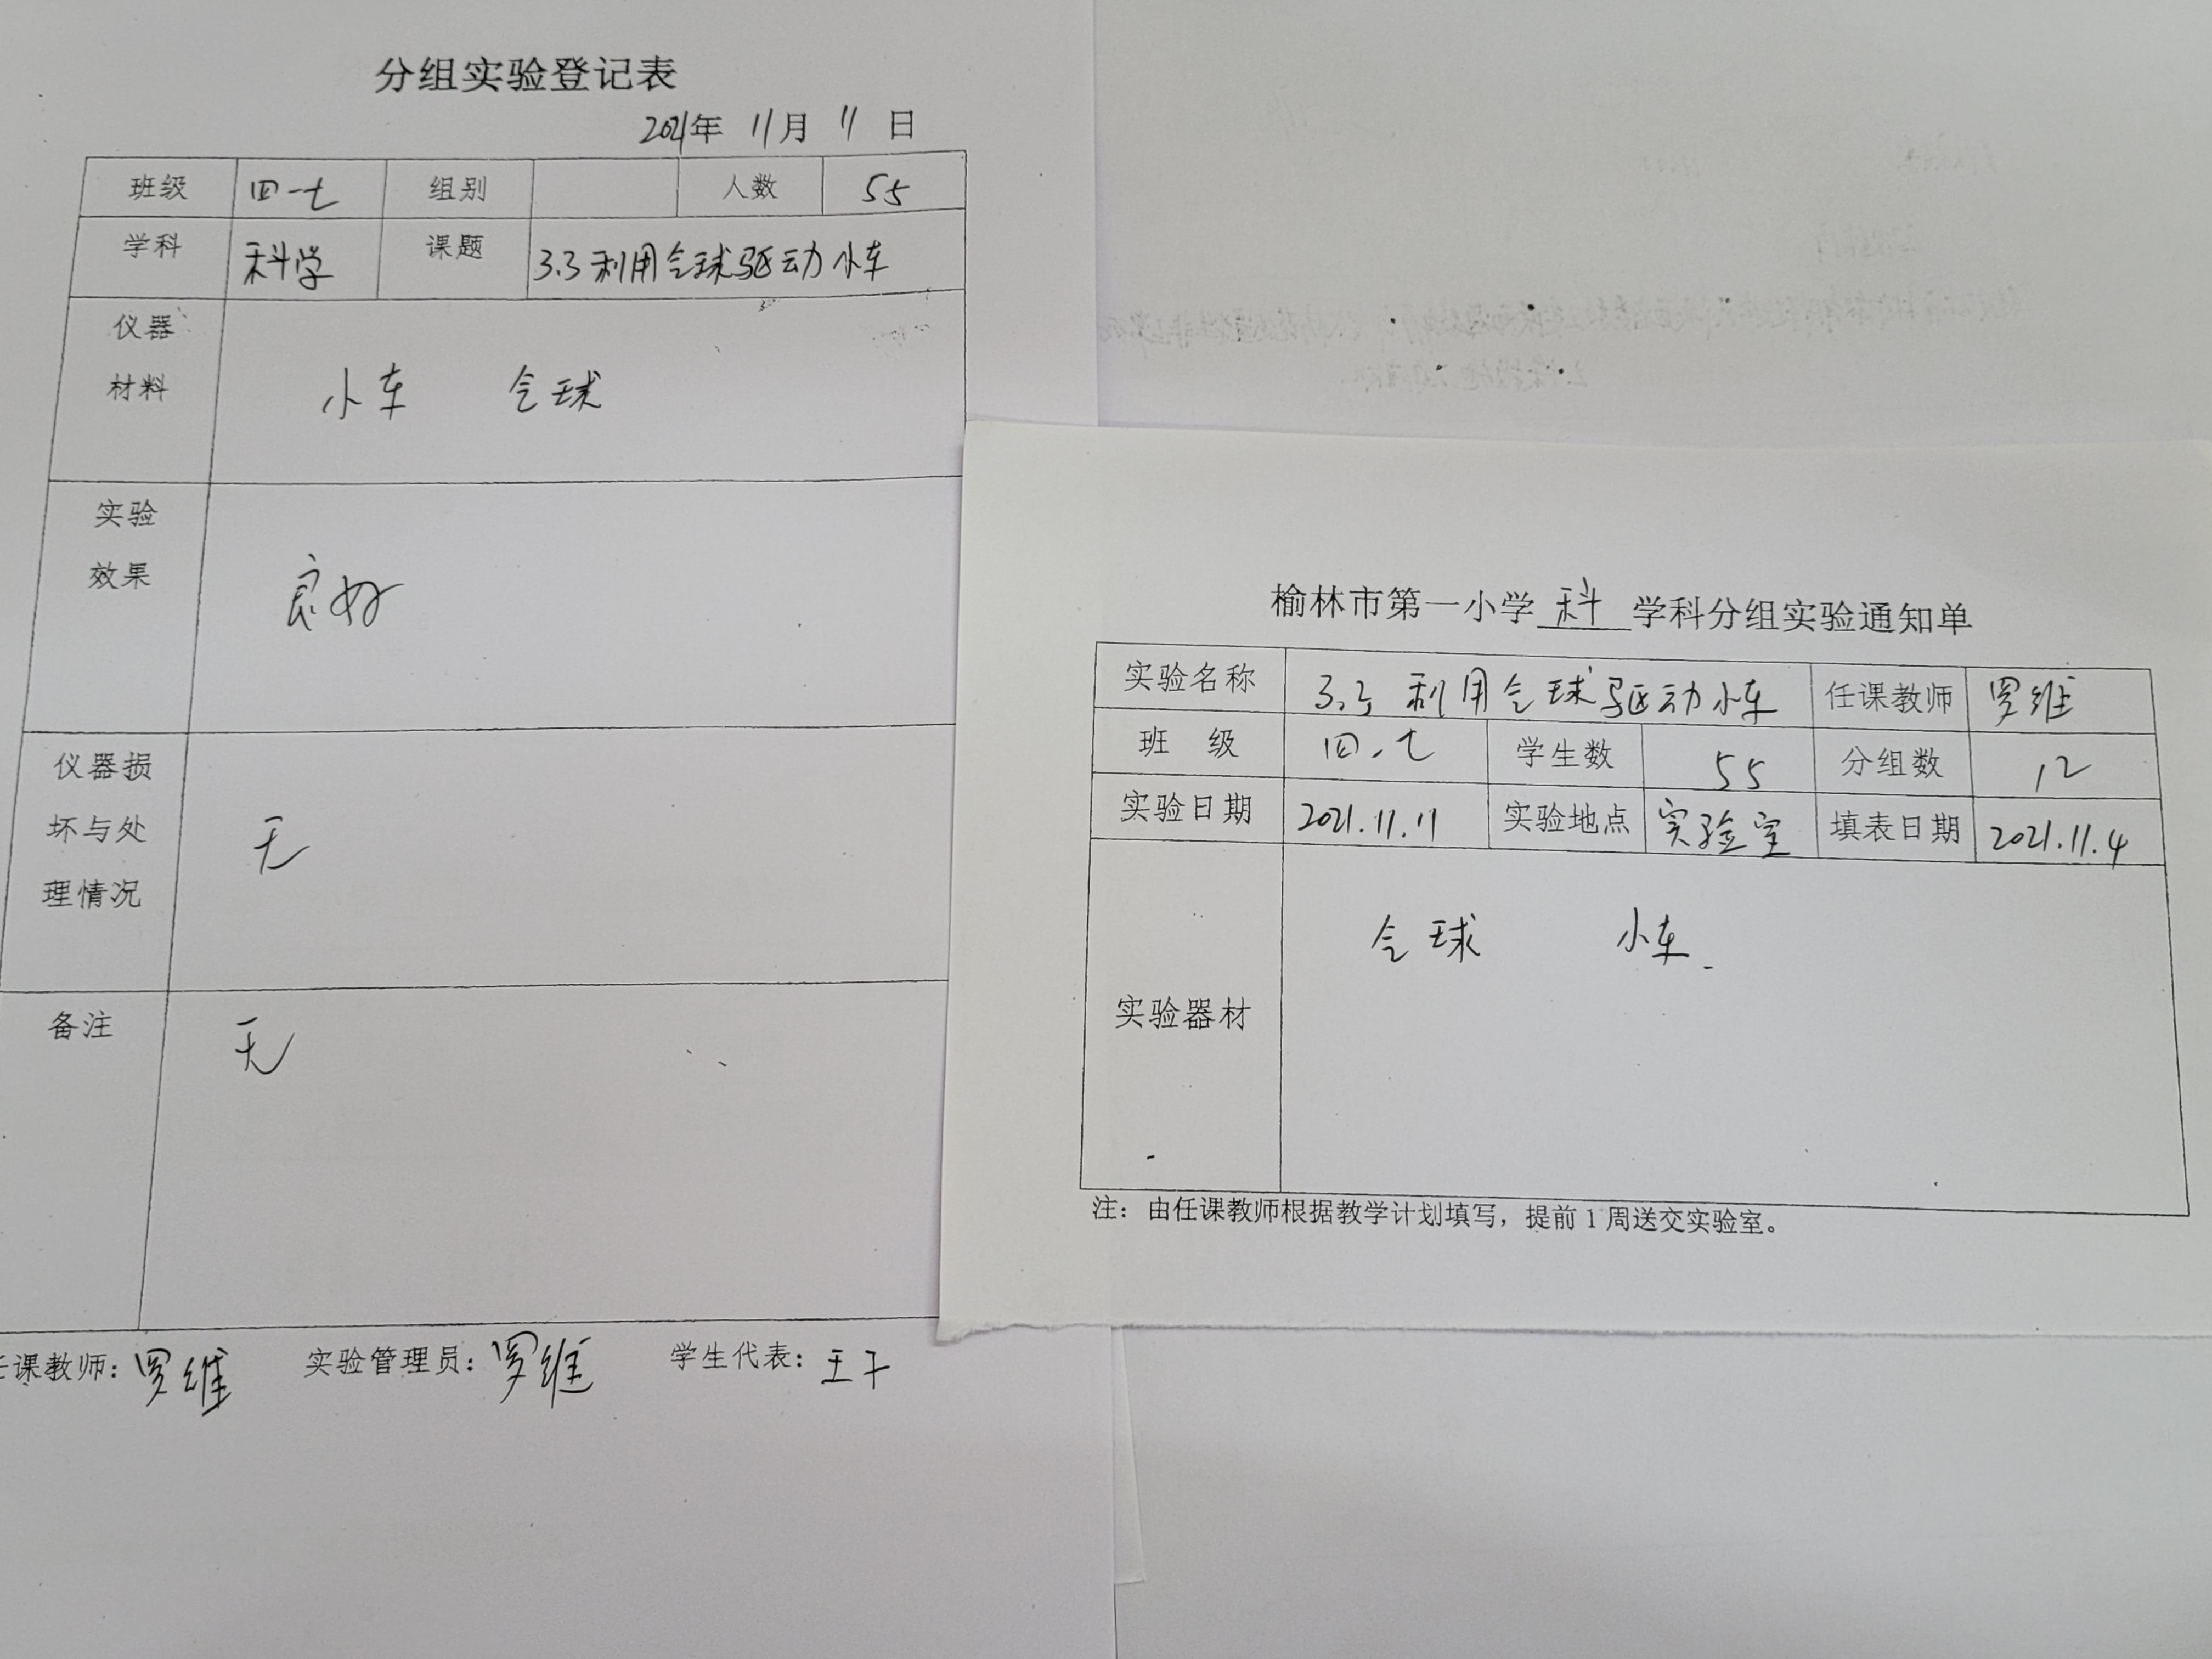 分组实验登记表
2021年 11月 11 日
班级 四一七 组别 人数 55
学科 科学 课题 3.3 利用气球驱动小车
仪器
材料
小车 气球
实验
效果
良好
仪器损
坏与处
理情况
无
备注
无
任课教师：罗维 实验管理员：罗维 学生代表：王干
榆林市第一小学 科 学科分组实验通知单
实验名称 3.3 利用气球驱动小车 任课教师 罗维
班 级 四.七 学生数 55 分组数 12
实验日期 2021.11.11 实验地点 实验室 填表日期 2021.11.4
实验器材 气球 小车.
注：由任课教师根据教学计划填写，提前1周送交实验室。